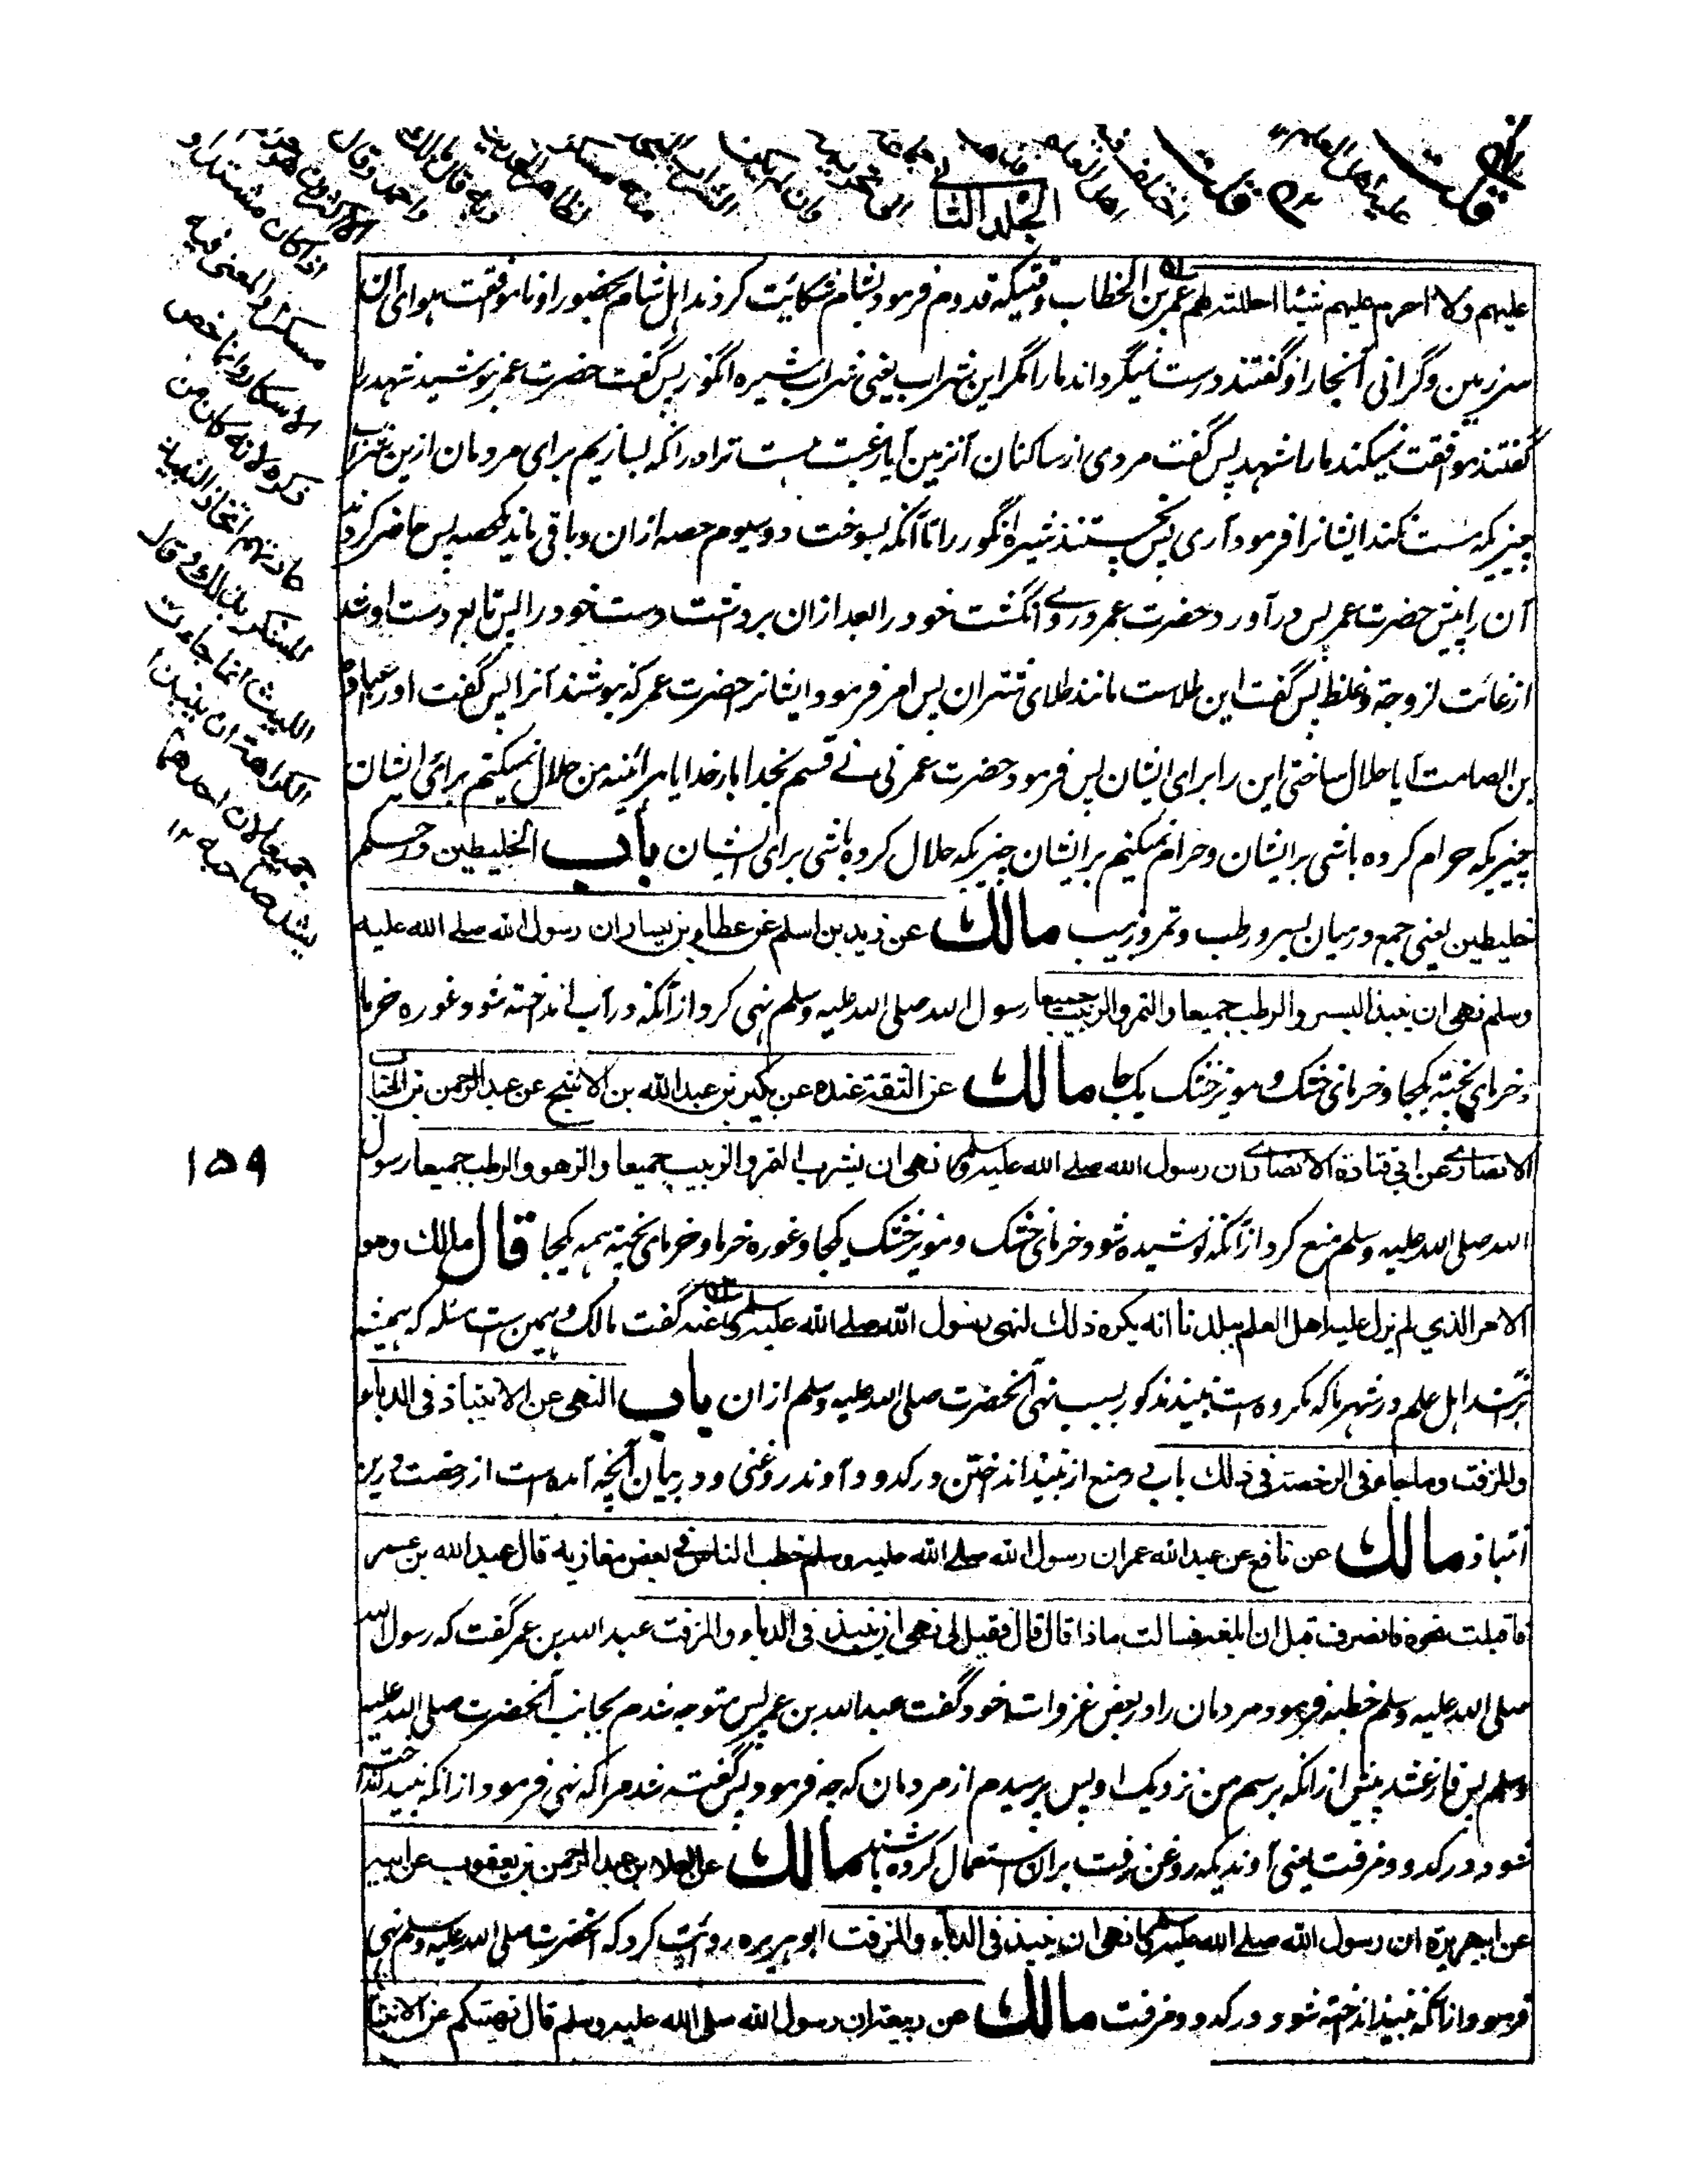 الجلد الثانی
علیهم ولا احرم علیهم شیئا احللته لهم عمر بن الخطاب وقتیکه قدوم فرمود بشام شکایت کردند اهل شام بحضور او ناموافقت هوای آن
سرزمین وگرانی آنجا را وگفتند درست نمیگرداند ما را مگر این شراب یعنی شراب شیره انگور پس گفت حضرت عمر بنوشید شهد را
گفتند موافقت نمیکند ما را شهد پس گفت مردی از ساکنان آنزمین آیا رغبت هست ترا در آنکه بسازیم برای مردمان ازین شراب
چیزیکه مست نکند ایشانرا فرمود آری پس پختند شیره انگور را تا آنکه بسوخت دو سیوم حصه ازان و باقی ماند یکحصه پس حاضر کردند
آن را پیش حضرت عمر پس در آورد حضرت عمر در وے انگشت خود را بعد ازان برداشت دست خود را پس تابع دست او شد
از غائت لزوجة وغلظ پس گفت این طلاست مانند طلای شتران پس امر فرمود ایشانرا حضرت عمر که بنوشند آنرا پس گفت او را عباده
بن الصامت آیا حلال ساختی این را برای ایشان پس فرمود حضرت عمر نی نے قسم بخدا بار خدایا هرآئنه من حلال نمیکنم برای ایشان
چیزیکه حرام کرده باشی بر ایشان وحرام نمیکنم بر ایشان چیزیکه حلال کرده باشی برای ایشان باب الخلیطین در حکم
خلیطین یعنی جمع درمیان بسر ورطب وتمر وزبیب مالك عن زید بن اسلم عن عطاء بن یسار ان رسول الله صلے الله علیه
وسلم نهی ان ینبذ البسر والرطب جمیعا والتمر والزبیب جمیعا رسول الله صلی الله علیه وسلم نهی کرد از آنکه در آب انداخته شود غوره خرما
وخرمای پخته یکجا وخرمای خشک ومویز خشک یکجا مالك عن الثقة عنده عن بکیر بن عبدالله بن الاشج عن عبدالرحمن بن الحباب
الانصاری عن ابی قتادة الانصاری ان رسول الله صلے الله علیه وسلم نهی ان یشرب التمر والزبیب جمیعا والزهو والرطب جمیعا رسول
الله صلی الله علیه وسلم منع کرد از آنکه نوشیده شود خرمای خشک ومویز خشک یکجا وغوره خرما وخرمای پخته همه یکجا قال مالك وهو
الامر الذی لم یزل علیه اهل العلم ببلدنا انه یکره ذلك لنهی رسول الله صلے الله علیه وسلم عنه گفت مالک وهمین ست مسئله که همیشه
برآنند اهل علم در شهر ما که مکروه است نبیذ مذکور بسبب نهی آنحضرت صلی الله علیه وسلم ازان باب النهی عن الانتباذ فی الدباء
والمزفت وما جاء فی الرخصة فی ذلك باب در منع از نبیذ انداختن در کدو و آوند روغنی و در بیان آنچه آمده است از رخصت درین
انتباذ مالك عن نافع عن عبدالله عمر ان رسول الله صلے الله علیه وسلم خطب الناس فی بعض مغازیه قال عبدالله بن عمر
فاقبلت نحوه فانصرف قبل ان ابلغه فسالت ماذا قال قال فقیل لی نهی ان ینبذ فی الدباء والمزفت عبدالله بن عمر گفت که رسول الله
صلی الله علیه وسلم خطبه فرمود مردمان را در بعض غزوات خود گفت عبدالله بن عمر پس متوجه شدم بجانب آنحضرت صلی الله علیه
وسلم پس فارغ شد پیش ازانکه برسم من نزدیک او پس پرسیدم از مردمان که چه فرمود پس گفته شد مرا که نهی فرمود ازانکه نبیذ انداخته
شود در کدو ومزفت یعنی آوندیکه روغن زفت بران استعمال کرده باشند مالك عن العلاء بن عبدالرحمن بن یعقوب عن ابیه
عن ابی هریرة ان رسول الله صلے الله علیه وسلم نهی ان ینبذ فی الدباء والمزفت ابوهریره روایت کرد که آنحضرت صلی الله علیه وسلم نهی
فرمود ازآنکه نبیذ انداخته شود در کدو ومزفت مالك عن ربیعة ان رسول الله صلی الله علیه وسلم قال نهیتکم عن الانتباذ
اذا کان مشتدا و
مسکرا والمعنی فیه
الاسکار وانما خص
ذکره لانه کان من
عادتهم اتخاذ النبیذ
المسکر بذلك وقال
اللیث انما جاءت
الکراهة ان ینبذا
جمیعا لان احدهما
یشد صاحبه ۱۲
۱۵۹